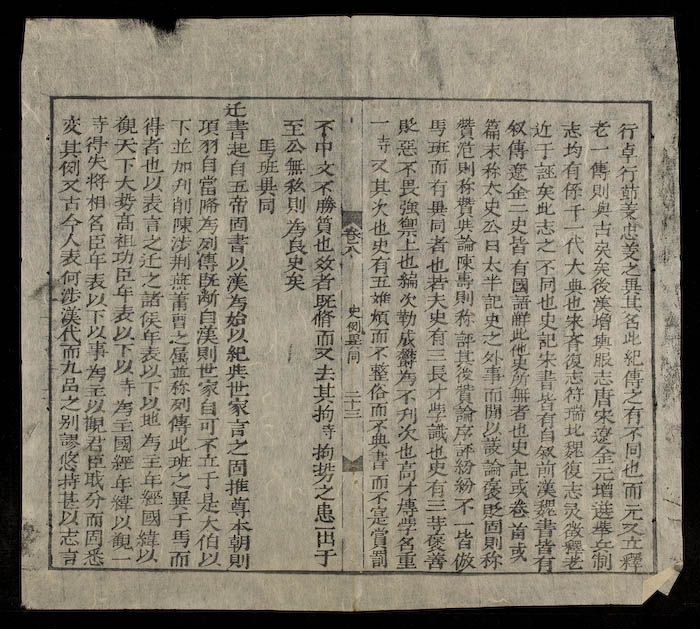 行卓行節義忠義之異其名此紀傳之有不同也而元又立釋
老一傳則與古矣矣後漢增輿服志唐宋遼金元增選舉兵制
志均有係千一代大典也宋齊復志符瑞北魏復志灵徵釋老
近于誣矣此志之不同也史記宋書皆有自叙前漢魏書皆有
叙傳遼金二史皆有國語觧此他史所無者也史記或卷首或
篇末称太史公曰太半記史之外事而間以議論褒貶固則称
贊范則称贊與論陳壽則称評其後贊論序評紛紛不一皆倣
馬班而有異同者也若夫史有三長才學識也史有三等褒善
貶惡不畏強禦上也編次勒成欝為不刋次也高才博學名重
一時又其次也史有五难煩而不整俗而不典書而不寔賞罰
不中文不勝質也效者既脩而又去其拘時拘势之患一出于
至公無私則為良史矣
馬班異同
迁書起自五帝固書以漢為始以紀與世家言之固推尊本朝則
項羽自當降為列傳既断自漢則世家自可不立于是太伯以
下並加刋削陳涉荆燕萧曹之属並称列傳此班之異于馬而
得者也以表言之迁之諸侯年表以下以地為主年經國緯以
觀天下大势高祖功臣年表以下以時為主國經年緯以觀一
時得失將相名臣年表以下以事為主以觀君臣职分而固悉
変其例又古今人表何涉漢代而九品之别謬悠特甚以志言
卷八
史例異同
二十三